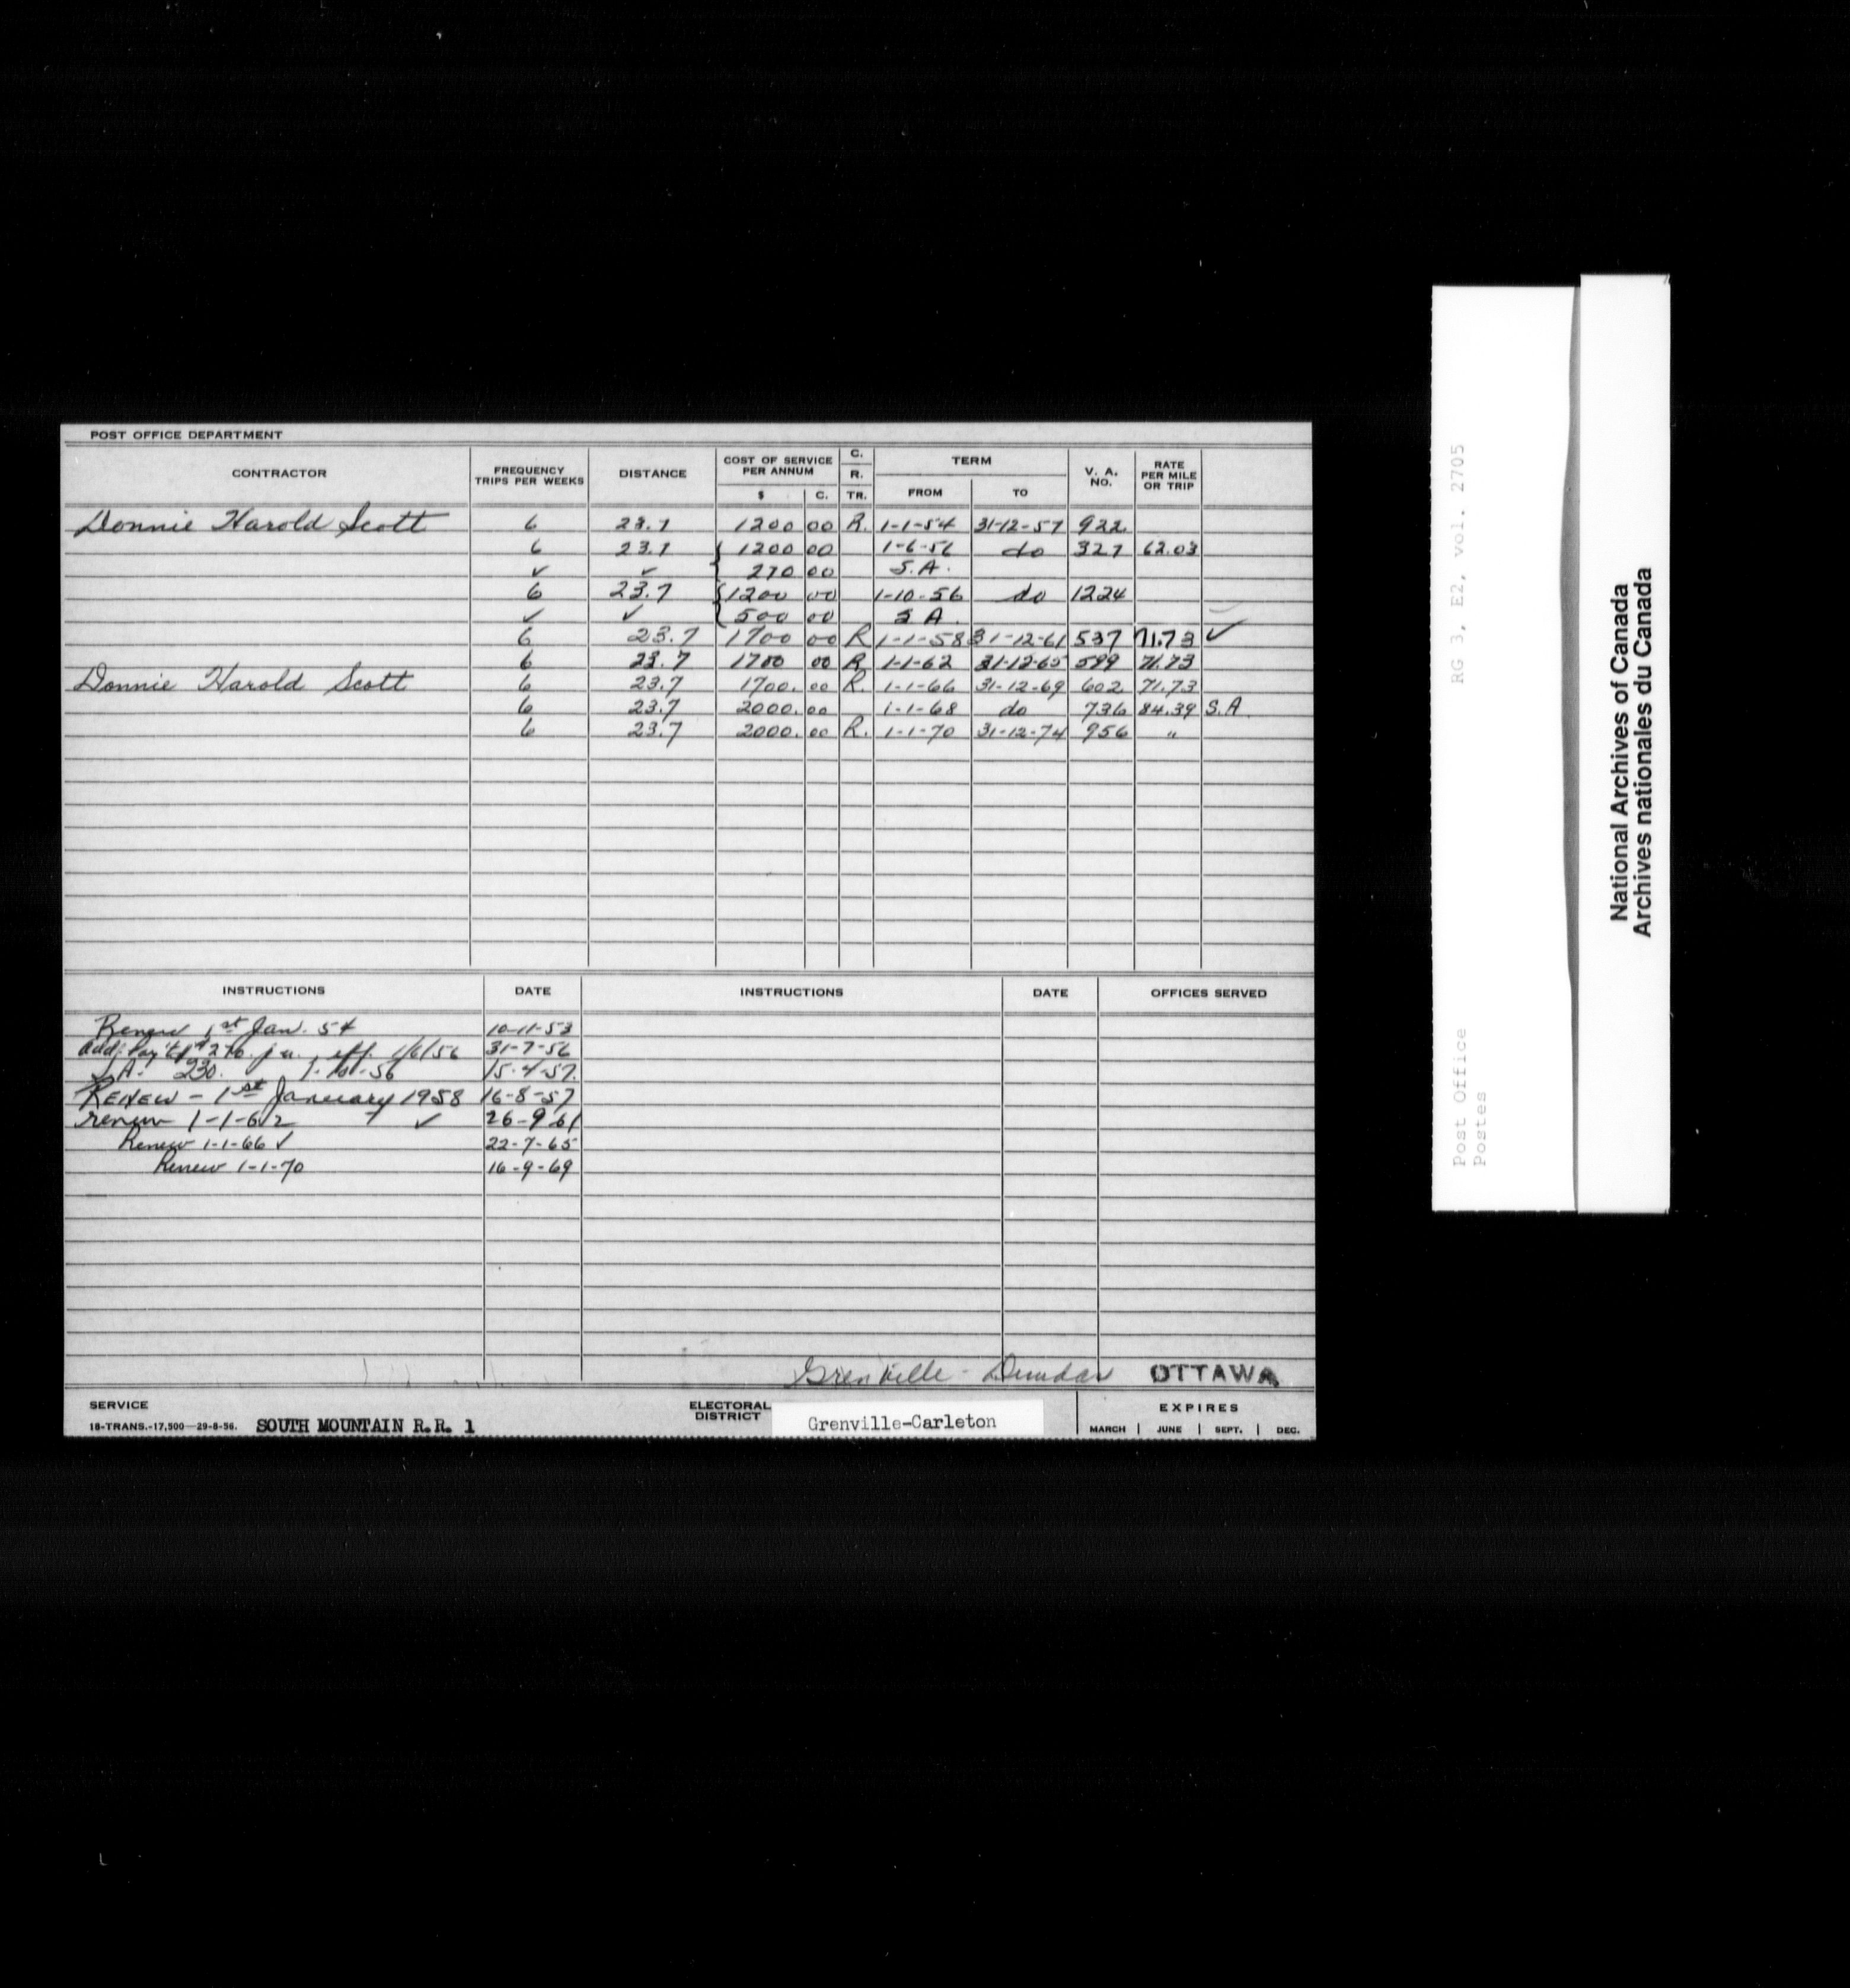 POST OFFICE DEPARTMENT
CONTRACTOR FREQUENCY TRIPS PER WEEKS DISTANCE COST OF SERVICE PER ANNUM $ C. C. R. TR. TERM FROM TO V. A. NO. RATE PER MILE OR TRIP
Donnie Harold Scott 6 23.7 1200 00 R. 1-1-54 31-12-57 922
6 23.7 { 1200 00 1-6-56 do 327 62.03
✓ ✓ 270 00 S.A.
6 23.7 { 1200 00 1-10-56 do 1224
✓ ✓ 500 00 S A
6 23.7 1700 00 R 1-1-58 31-12-61 537 71.73 ✓
6 23.7 1700 00 R 1-1-62 31-12-65 599 71.73
Donnie Harold Scott 6 23.7 1700. 00 R. 1-1-66 31-12-69 602 71.73
6 23.7 2000. 00 1-1-68 do 736 84.39 S.A.
6 23.7 2000. 00 R. 1-1-70 31-12-74 956 "
INSTRUCTIONS DATE INSTRUCTIONS DATE OFFICES SERVED
Renew 1st Jan. 54 10-11-53
add: Pay't $270. eff. 1/6/56 31-7-56
S.A. 230. 1-10-56 15-4-57
RENEW - 1st January 1958 16-8-57
renew 1-1-62 ✓ 26-9-61
Renew 1-1-66 ✓ 22-7-65
Renew 1-1-70 16-9-69
Grenville - Dundas OTTAWA
SERVICE
18-TRANS.-17,500—29-8-56. SOUTH MOUNTAIN R.R. 1
ELECTORAL DISTRICT Grenville-Carleton
EXPIRES
MARCH | JUNE | SEPT. | DEC.
RG 3, E2, vol. 2705
Post Office
Postes
National Archives of Canada
Archives nationales du Canada